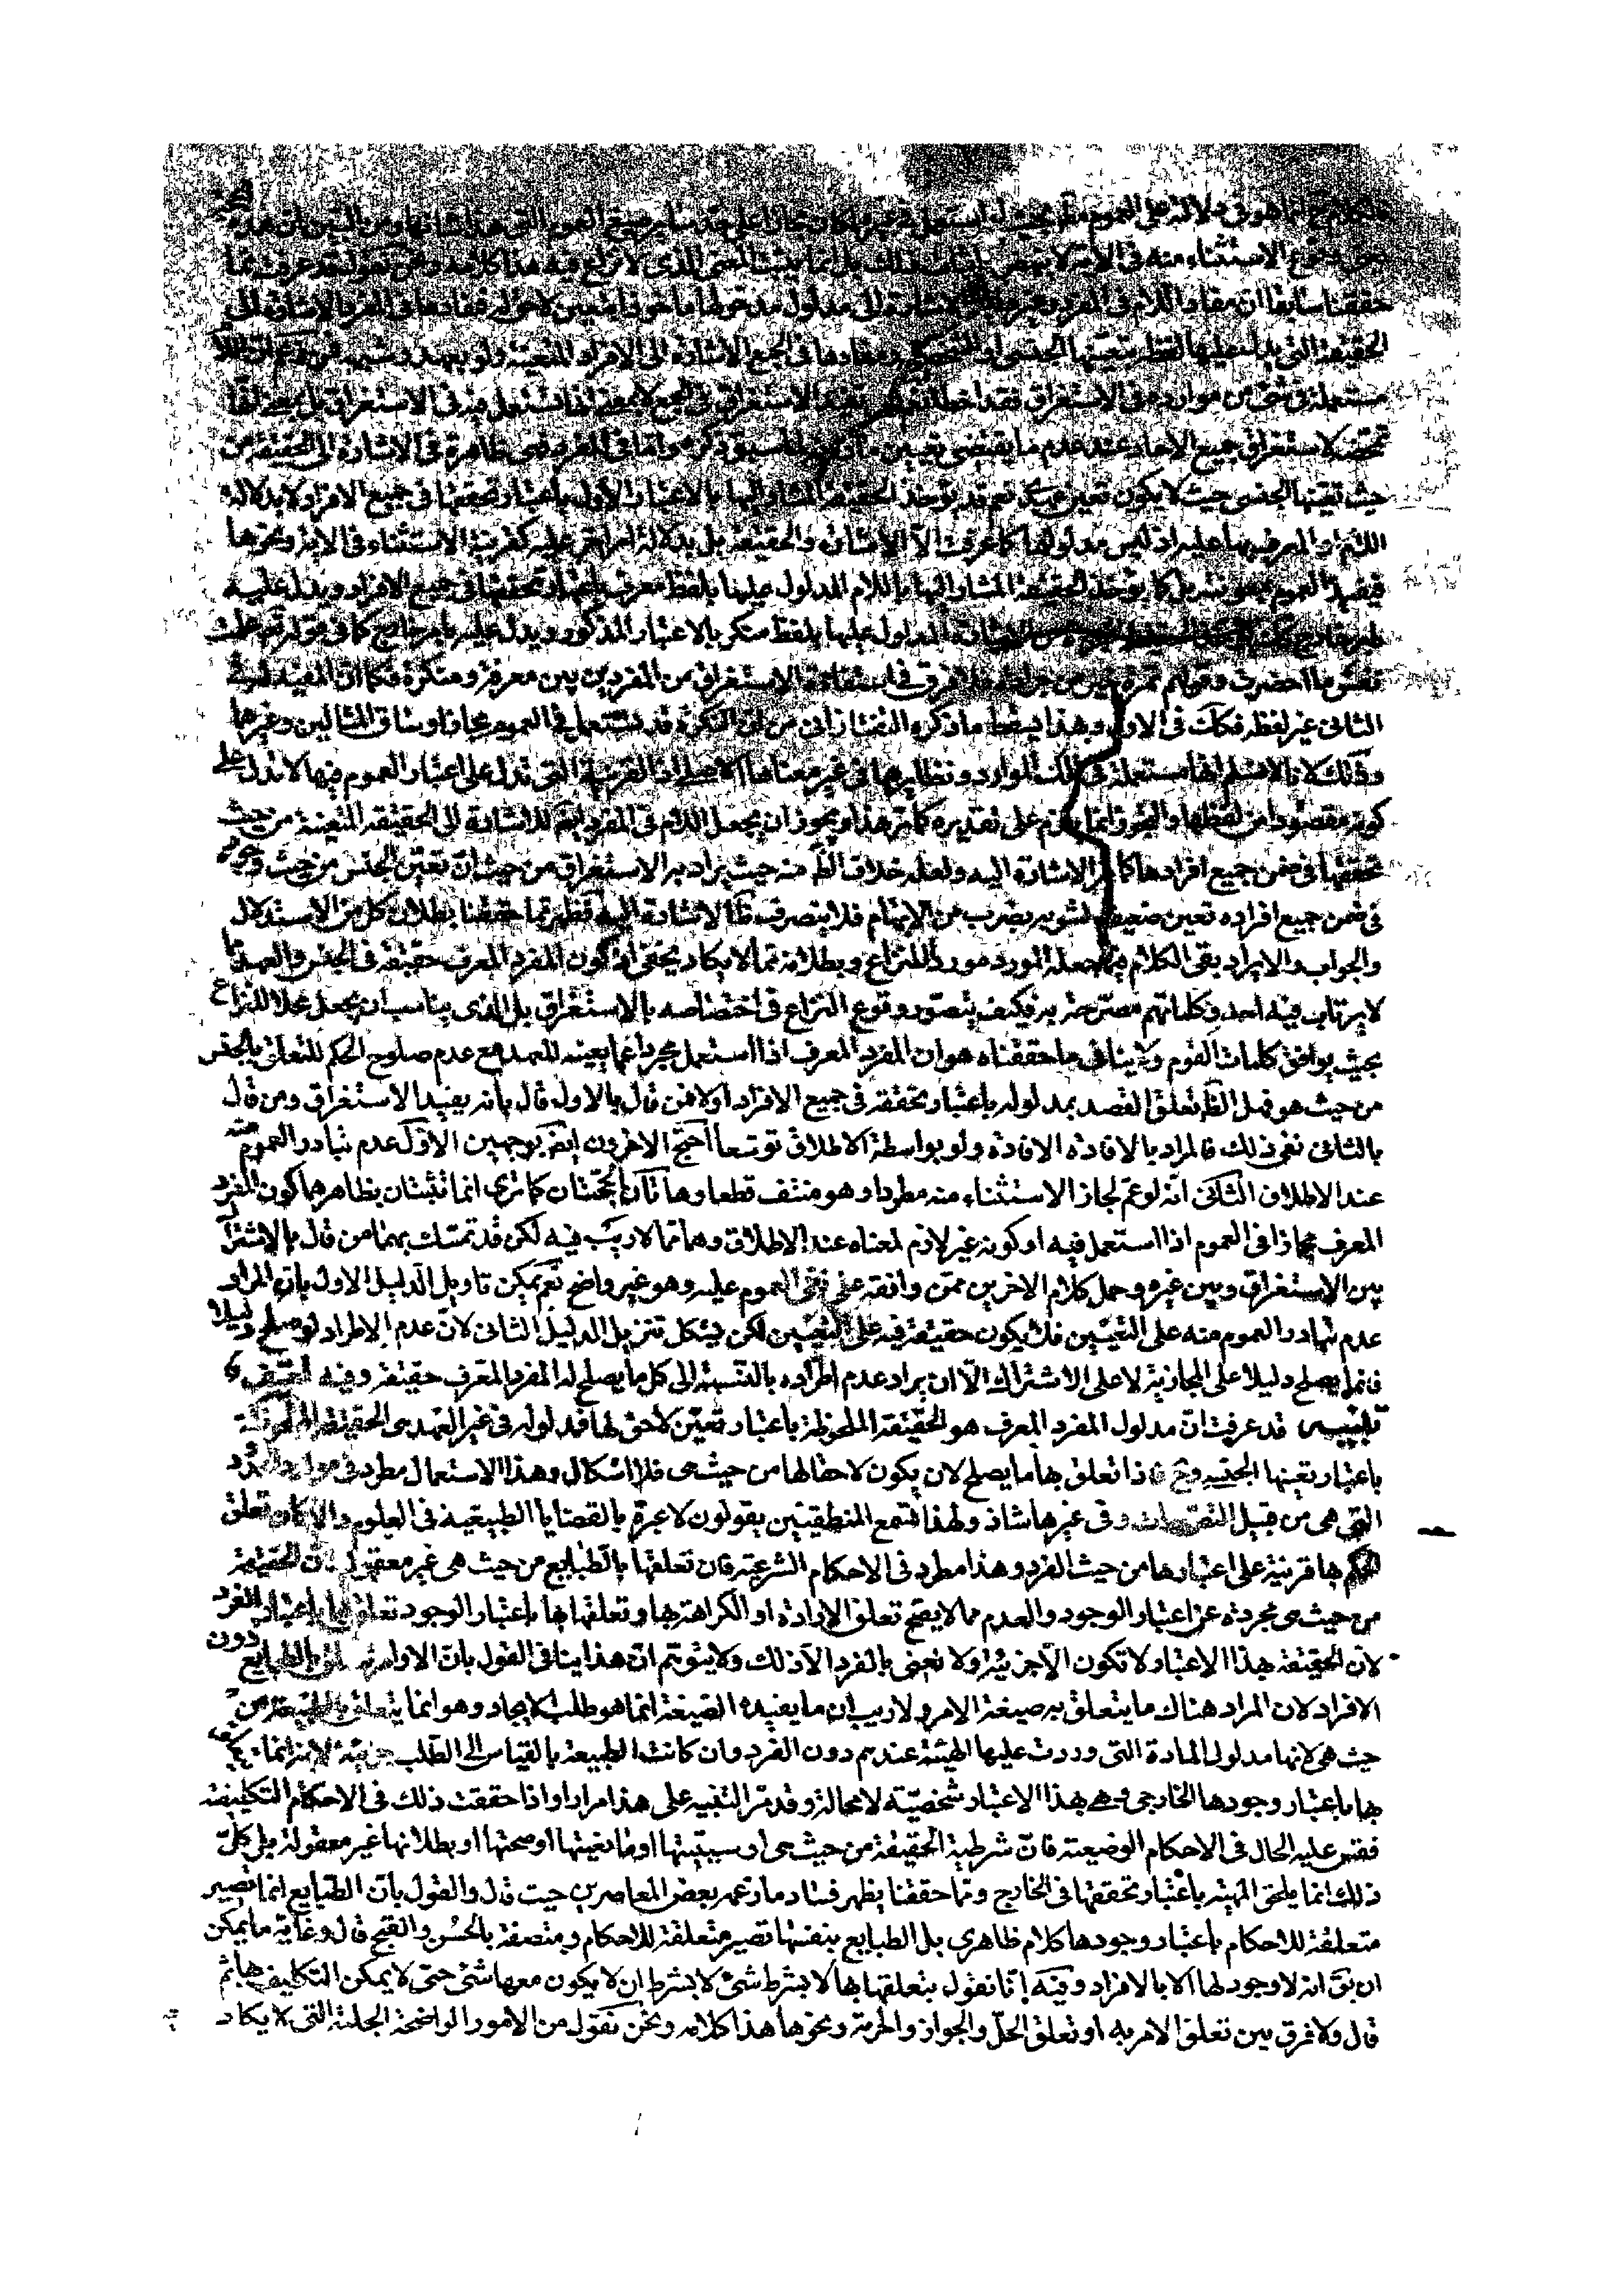 والكلام انما هو في دلالته على العموم بحيث لو استعمل في غيره كان مجازا على حد ساير صيغ العموم التي هذا شانها ومن البين ان هذه
وقوع الاستثناء منه في الآية لا ينهض باثبات ذلك بل انما يثبت المعنى الذي لا نزاع فيه هذا كلامه ونحن نقول قد عرفت مما
حققنا سابقا ان مفاد اللام في المفرد وغيره الاشارة الى مدلول مدخولها ماخوذا متعين لاحق له فمفادها في المفرد الاشارة الى
الحقيقة التي يدل عليها لفظه بتعينها الجنسي او الشخصي ومفادها في الجمع الاشارة الى الافراد المتعينة ولو بعهد وشبهه فمن زعم ان اللام
مستعملة في شيء من موارده في الاستغراق فقد اخطا نعم تفيد الاستغراق في الجمع لا بمعنى انها تستعمل فيه في الاستغراق بل بمعنى انها
تمحض لاستغراق جميع الاحاد عند عدم ما يقتضي تعيين ما دونها لما سبق ذكره واما في المفرد فهي ظاهرة في الاشارة الى الحقيقة من
حيث تعينها الجنسي حيث لا يكون تعين عهدي نعم قد توخذ الحقيقة المشار اليها بالاعتبار الاول باعتبار تحققها في جميع الافراد لا بدلالة
اللام او المعرف بها عليه اذ ليس مدلولها كما عرفت الا الاشارة والحقيقة بل بدلالة امر اخر عليه كقرينة الاستثناء في الآية ونحوها
فيفيد العموم بمعونته بل كما يوخذ الحقيقة المشار اليها باللام المدلول عليها بلفظ معرف باعتبار تحققها في جميع الافراد ويدل عليه
بامر خارج كذلك المدلول عليها بلفظ منكر بالاعتبار المذكور ويدل عليه بامر خارج كما في قوله تعالى علمت
نفس ما احضرت وقولهم تمرة خير من جرادة فلا فرق في استفادة الاستغراق من المفردين بين معرفة ومنكرة فكما ان المفيد له في
الثاني غير لفظه فكك في الاول وبهذا يسقط ما ذكره التفتازاني من ان النكرة قد تستعمل في العموم مجازا وساق المثالين وغيرها
وذلك لانا لا نسلم انها مستعملة في تلك الموارد ونظايرها في غير معناها الاصلي اذ القرينة التي تدل على اعتبار العموم فيها لا تدل على
كونه مقصودا من لفظها والتجوز انما يلزم على تقديره كما مر هذا ويجوز ان يجعل اللام في المفرد ايضا للاشارة الى الحقيقة المتعينة من حيث
تحققها في ضمن جميع افرادها كما مر الاشارة اليه ولعله خلاف الظ منه حيث يراد به الاستغراق من حيث ان تعين الجنس من حيث وجوده
في ضمن جميع افراده تعين ضعيف لشوبه بضرب من الابهام فلا ينصرف ظ الاشارة اليه فظهر مما حققنا بطلان كل من الاستدلال
والجواب والايراد بقي الكلام فيما جعله المورد موردا للنزاع وبطلانه مما لا يكاد يخفى اذ كون المفرد المعرف حقيقة في الجنس والعهد مما
لا يرتاب فيه احد وكلماتهم مصرحة به فكيف يتصور وقوع النزاع في اختصاصه بالاستغراق بل الذي يناسب ان يجعل محلا للنزاع
بحيث يوافق كلمات القوم ولا ينافي ما حققناه هو ان المفرد المعرف اذا استعمل مجردا عما يعينه للعهد مع عدم صلوح الحكم للتعلق بالجنس
من حيث هو فهل الظ تعلق القصد بمدلوله باعتبار تحققه في جميع الافراد اولا فمن قال بالاول قال بانه يفيد الاستغراق ومن قال
بالثاني نفى ذلك فالمراد بالافادة الافادة ولو بواسطة الاطلاق توسعا احتج الاخرون ايضا بوجهين الاول عدم تبادر العموم منه
عند الاطلاق الثاني انه لو عم لجاز الاستثناء منه مطردا وهو منتف قطعا وهاتان الحجتان كما ترى انما تثبتان بظاهرهما كون المفرد
المعرف مجازا في العموم اذا استعمل فيه او كونه غير لازم لمعناه عند الاطلاق وهما مما لا ريب فيه لكن قد تمسك بهما من قال بالاشتراك
بين الاستغراق وبين غيره وحمل كلام الاخرين ممن وافقه على نفي العموم عليه وهو غير واضح نعم يمكن تاويل الدليل الاول بان المراد
عدم تبادر العموم منه على التعيين فلا يكون حقيقة فيه على التعيين لكن يشكل تنزيل الدليل الثاني لان عدم الاطراد لو صلح دليلا
فانما يصلح دليلا على المجازية لا على الاشتراك الا ان يراد عدم اطراده بالنسبة الى كل ما يصلح له المفرد المعرف حقيقة وفيه تعسف
تنبيه قد عرفت ان مدلول المفرد المعرف هو الحقيقة الملحوظة باعتبار تعين لاحق لها فمدلوله في غير العهد هي الحقيقة الملحوظة
باعتبار تعينها الجنسي وح فاذا تعلق بها ما يصلح لان يكون لاحقا لها من حيث هي فلا اشكال وهذا الاستعمال مطرد في موارد الحدود
التي هي من قبيل التصورات وفي غيرها شاذ ولهذا تسمع المنطقيين يقولون لا عبرة بالقضايا الطبيعية في العلوم والا كان تعلق
الحكم بها قرينة على اعتبارها من حيث الفرد وهذا مطرد في الاحكام الشرعية فان تعلقها بالطبايع من حيث هي غير معقول لان الحقيقة
من حيث هي مجردة عن اعتبار الوجود والعدم مما لا يصح تعلق الارادة او الكراهة بها وتعلقها بها باعتبار الوجود تعلق بها باعتبار الفرد
لان الحقيقة بهذا الاعتبار لا تكون الا جزئية ولا نعني بالفرد الا ذلك ولا يتوهم ان هذا ينافي القول بان الاوامر تتعلق بالطبايع دون
الافراد لان المراد هناك ما يتعلق به صيغة الامر ولا ريب ان ما يفيده الصيغة انما هو طلب الايجاد وهو انما يتعلق بالطبيعة من
حيث هي لانها مدلول المادة التي وردت عليها الهيئة عندهم دون الفرد وان كانت الطبيعة بالقياس الى الطلب جزئية لانه انما يتعلق
بها باعتبار وجودها الخارجي وهي بهذا الاعتبار شخصية لا محالة وقد مر التنبيه على هذا مرارا واذا حققت ذلك في الاحكام التكليفية
فقس عليه الحال في الاحكام الوضعية فان شرطية الحقيقة من حيث هي او سببيتها او مانعيتها او صحتها او بطلانها غير معقولة بل كل
ذلك انما يلحق المهية باعتبار تحققها في الخارج ومما حققنا يظهر فساد ما زعمه بعض المعاصرين حيث قال والقول بان الطبايع انما تصير
متعلقة للاحكام باعتبار وجودها كلام ظاهري بل الطبايع بنفسها تصير متعلقة للاحكام ومتصفة بالحسن والقبح قال وغاية ما يمكن
ان يق انه لا وجود لها الا بالافراد وفيه انا نقول بتعلقها بها لا بشرط شيء لا بشرط ان لا يكون معها شيء حتى لا يمكن التكليف بها ثم
قال ولا فرق بين تعلق الامر به او تعلق الحل والجواز والحرمة ونحوها هذا كلامه ونحن نقول من الامور الواضحة الجلية التي لا يكاد